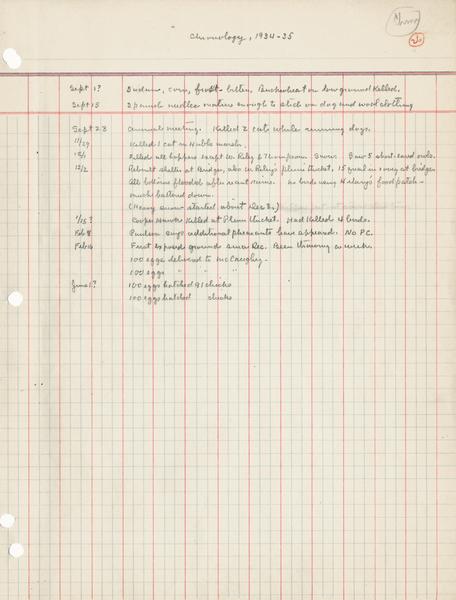 Chronology, 1934-35
Sept 1? Sudan, corn, frost-bitten. Buckwheat on low ground killed.
Sept 15 Spanish needles mature enough to stick on dog and wool clothing
Sept 23 Annual meeting. Killed 2 cats while running dogs.
11/29 Killed 1 cat in Hubble marsh.
12/1 Filled all hoppers except W. Riley & Thompson. Snow. Saw 5 short-eared owls.
12/2 Rebuilt shelter at Bridge, also in Riley's plum thicket, 15 quail in covey at bridge.
All bottoms flooded after recent rains. No birds using food patch -
much battered down.
(Heavy snow started about Dec 3.)
1/15? Cooper Hawk killed at Plum thicket. Had killed 4 birds.
Feb 8 Paulson says additional pheasants have appeared. No P.C.
Feb 14 First exposed ground since Dec. Been thawing a week.
100 eggs delivered to McCaughey.
100 eggs " " "
June 1? 100 eggs hatched 91 chicks
100 eggs hatched chicks